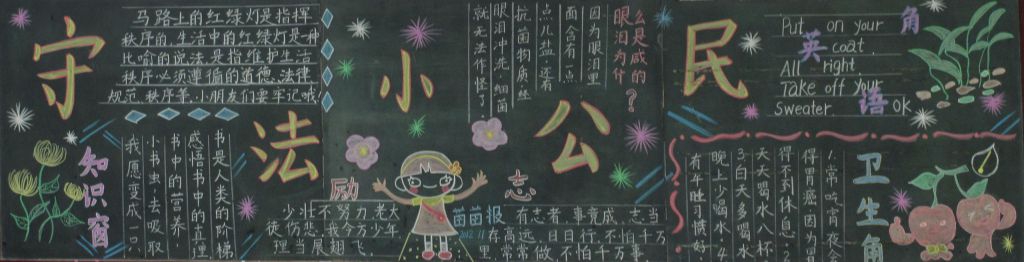 守法小公民
马路上的红绿灯是指挥
秩序的,生活中的红绿灯是一种
比喻的说法,是指维护生活
秩序必须遵循的道德、法律
规范、秩序等,小朋友们要牢记哦!
知识窗
书是人类的阶梯
感悟书中的真理
书中的营养,
小书虫,去吸取
我愿变成一只,
眼泪为什
么是咸的?
因为眼泪里
面含有一点
点儿盐,还有
抗菌物质,些
眼泪冲洗,细菌
就无法作怪了。
励志
少壮不努力,老大
徒伤悲。我今方少年
理当展翅飞。
苗苗报
有志者,事竟成,志当
存高远,日日行,不怕千万
里,常常做,不怕千万事
英语角
Put on your
coat.
All right
Take off your
Sweater.
Ok
卫生角
1.常吃宵夜会
得胃癌因为胃
得不到休息.2.
天天喝水八杯
3.白天多喝水
晚上少喝水.4.
有午睡习惯好.